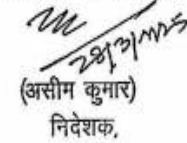 (असीम कुमार)
निदेशक,